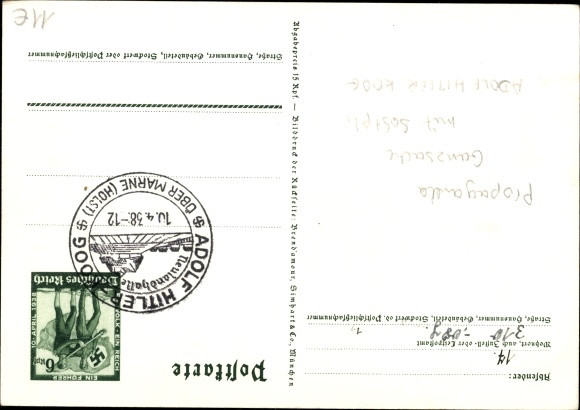 Postkarte
Absender:
Wohnort, auch Zustell- oder Leitpostamt
Straße, Hausnummer, Gebäudeteil, Stockwerk od. Postschließfachnummer
14
310
Propaganda
Ganzsache
mit Sostpl.
ADOLF HITLER KOOG
Abgabepreis 15 Rpf – Bildwand der Rückseite: Bernd
Simhart & Co., München
EIN FÜHRER
EIN VOLK EIN REICH
6 Rpf
Deutsches Reich
ADOLF HITLER-KOOG
ÜBER MARNE (HOLST)
10.4.38–12
Neulandhalle
Straße, Hausnummer, Gebäudeteil, Stockwerk oder Postschließfachnummer
11E